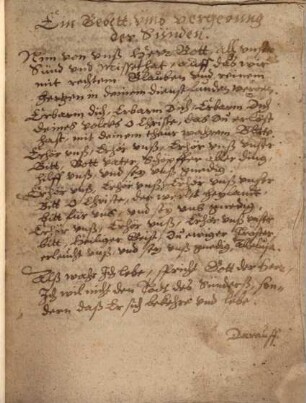 Ein Gebett umb vergebung
der Sünden.
Nim von unß Herr Gott all unsre
Sünd und Missethat, auff das wir
mit rechtem Glauben und reinem
hertzen in deinem dienst werden
Erbarm dich, Erbarm Dich, Erbarm Dich
deines volcks O Christe, das du erlöst
hast mit deinem theur warem Blute
Erhör unß, Erhör unß, Erhör unß unser
Bitt, Gott vater, Schöpffer aller ding,
hilff unß und sey unß gnedig
Erhör unß, Erhör unß, Erhör unß unser
Bitt O Christe, der welt Heyland
bitt für uns, und sey uns gnedig,
Erhör unß, Erhör unß, Erhör unß unsre
bitt, Heiliger Geist, Du einiger Tröster
erleucht unß, und sey unß gnedig, Alleluja.
Alß wahr Ich lebe, spricht Gott der Herr,
Ich wil nicht den Todt des Sünderß, son-
dern daß Er sich bekehre und lebe.
Darauff